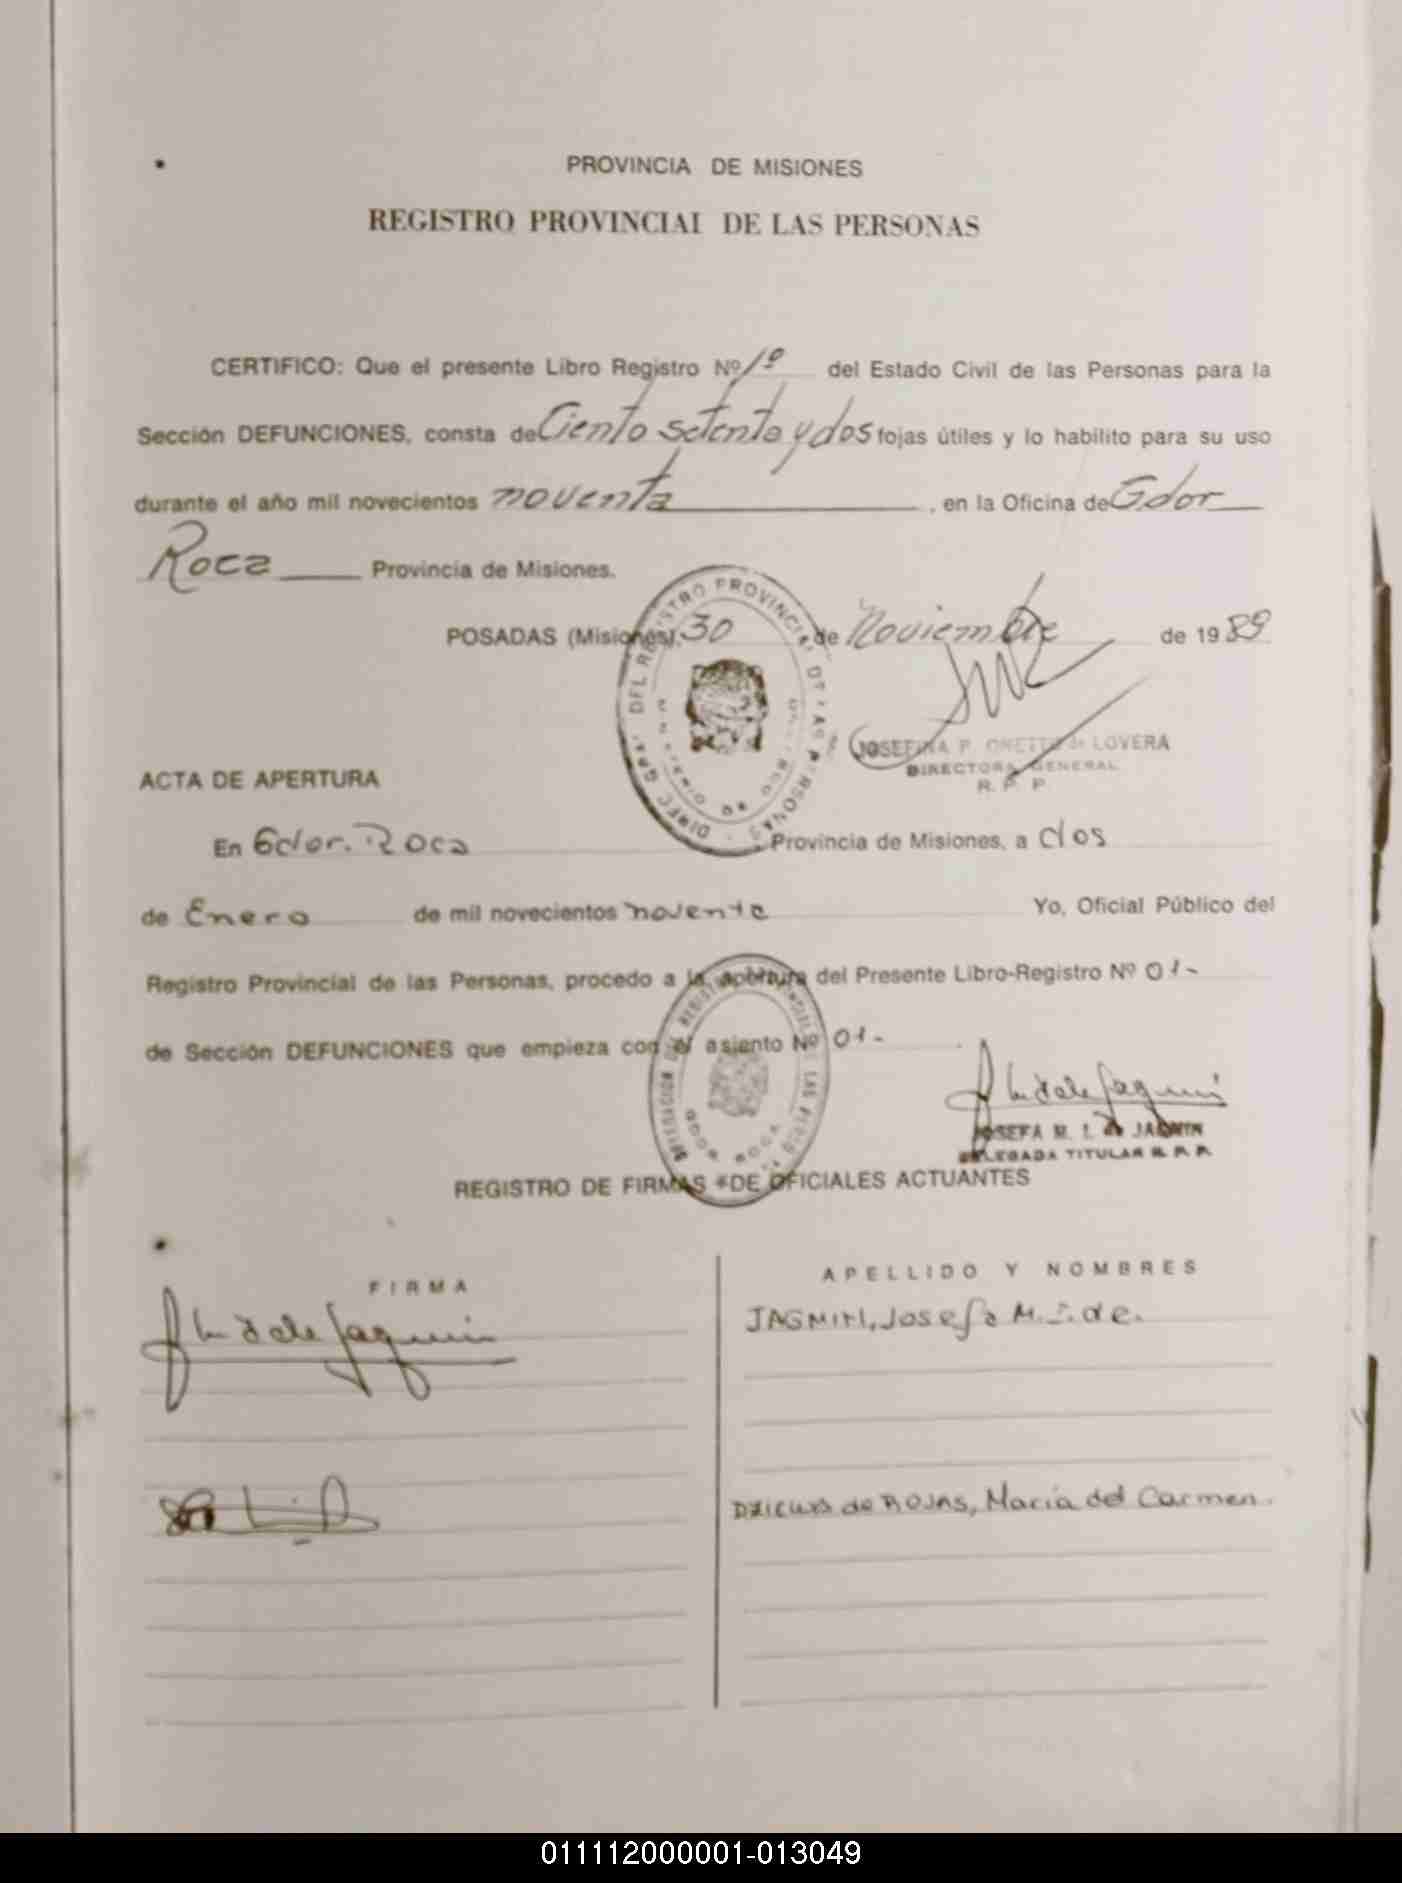 PROVINCIA DE MISIONES
REGISTRO PROVINCIAL DE LAS PERSONAS
CERTIFICO: Que el presente Libro Registro Nº 1º del Estado Civil de las Personas para la
Sección DEFUNCIONES, consta de Ciento setenta y dos fojas útiles y lo habilito para su uso
durante el año mil novecientos noventa, en la Oficina de Gdor
Roca Provincia de Misiones.
POSADAS (Misiones), 30 de Noviembre de 1989
JOSEFINA P. ONETTO de LOVERA
DIRECTORA GENERAL
R. P. P
ACTA DE APERTURA
En Gdor. Roca Provincia de Misiones, a dos
de Enero de mil novecientos noventa Yo, Oficial Público del
Registro Provincial de las Personas, procedo a la apertura del Presente Libro-Registro Nº 01-
de Sección DEFUNCIONES que empieza con el asiento Nº 01-
JOSEFA M. I. de JAGMIN
DELEGADA TITULAR R. P. P.
GDOR ROCA
REGISTRO DE FIRMAS DE OFICIALES ACTUANTES
FIRMA
APELLIDO Y NOMBRES
JAGMIN, Josefa M. I. de.
de ROJAS, María del Carmen.
011112000001-013049